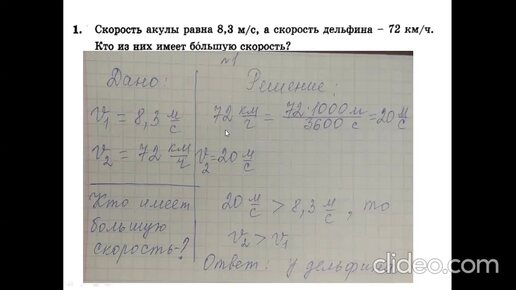 1. Скорость акулы равна 8,3 м/с, а скорость дельфина – 72 км/ч.
Кто из них имеет бо́льшую скорость?
№1
Дано:
v₁ = 8,3 м/с
v₂ = 72 км/ч
Кто имеет
большую
скорость-?
Решение:
72 км/ч = 72·1000 м / 3600 с = 20 м/с
v₂ = 20 м/с
20 м/с > 8,3 м/с, то
v₂ > v₁
Ответ: у дельфина
clideo.com